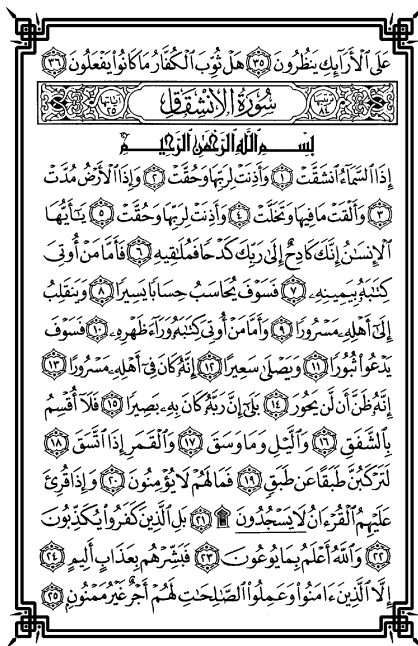 عَلَى ٱلْأَرَآئِكِ يَنظُرُونَ ٣٥ هَلْ ثُوِّبَ ٱلْكُفَّارُ مَا كَانُوا۟ يَفْعَلُونَ ٣٦
ترتيبها ٨٤ سُورَةُ الانْشِقَاقِ آياتها ٢٥
بِسْمِ ٱللَّهِ ٱلرَّحْمَٰنِ ٱلرَّحِيمِ
إِذَا ٱلسَّمَآءُ ٱنشَقَّتْ ١ وَأَذِنَتْ لِرَبِّهَا وَحُقَّتْ ٢ وَإِذَا ٱلْأَرْضُ مُدَّتْ
٣ وَأَلْقَتْ مَا فِيهَا وَتَخَلَّتْ ٤ وَأَذِنَتْ لِرَبِّهَا وَحُقَّتْ ٥ يَٰٓأَيُّهَا
ٱلْإِنسَٰنُ إِنَّكَ كَادِحٌ إِلَىٰ رَبِّكَ كَدْحًا فَمُلَٰقِيهِ ٦ فَأَمَّا مَنْ أُوتِيَ
كِتَٰبَهُۥ بِيَمِينِهِۦ ٧ فَسَوْفَ يُحَاسَبُ حِسَابًا يَسِيرًا ٨ وَيَنقَلِبُ
إِلَىٰٓ أَهْلِهِۦ مَسْرُورًا ٩ وَأَمَّا مَنْ أُوتِيَ كِتَٰبَهُۥ وَرَآءَ ظَهْرِهِۦ ١٠ فَسَوْفَ
يَدْعُوا۟ ثُبُورًا ١١ وَيَصْلَىٰ سَعِيرًا ١٢ إِنَّهُۥ كَانَ فِىٓ أَهْلِهِۦ مَسْرُورًا ١٣
إِنَّهُۥ ظَنَّ أَن لَّن يَحُورَ ١٤ بَلَىٰٓ إِنَّ رَبَّهُۥ كَانَ بِهِۦ بَصِيرًا ١٥ فَلَآ أُقْسِمُ
بِٱلشَّفَقِ ١٦ وَٱلَّيْلِ وَمَا وَسَقَ ١٧ وَٱلْقَمَرِ إِذَا ٱتَّسَقَ ١٨
لَتَرْكَبُنَّ طَبَقًا عَن طَبَقٍ ١٩ فَمَا لَهُمْ لَا يُؤْمِنُونَ ٢٠ وَإِذَا قُرِئَ
عَلَيْهِمُ ٱلْقُرْءَانُ لَا يَسْجُدُونَ ۩ ٢١ بَلِ ٱلَّذِينَ كَفَرُوا۟ يُكَذِّبُونَ
٢٢ وَٱللَّهُ أَعْلَمُ بِمَا يُوعُونَ ٢٣ فَبَشِّرْهُم بِعَذَابٍ أَلِيمٍ ٢٤
إِلَّا ٱلَّذِينَ ءَامَنُوا۟ وَعَمِلُوا۟ ٱلصَّٰلِحَٰتِ لَهُمْ أَجْرٌ غَيْرُ مَمْنُونٍۭ ٢٥